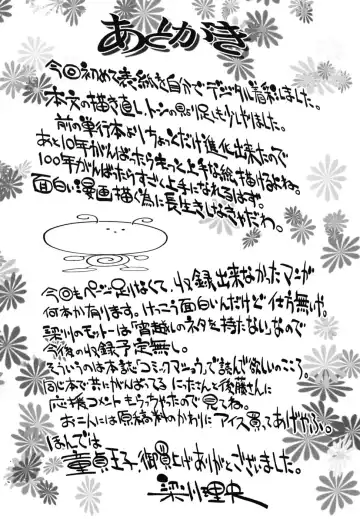 あとがき
今回初めて表紙を自分でデジタル着彩しました。
本文の描き直しトーンの見直し足しも少しやりました。
前の単行本よりちょっとだけ進化出来たので
あと10年がんばったらきっと上手な絵描けるよね。
100年がんばったらすごく上手になれるはず。
面白い漫画描く為に長生きしなきゃだわ。
今回もページ足りなくて、収録出来なかったマンガ
何本か有ります。けっこう面白いんだけど仕方無いや。
梁川のモットーは「宵越しのネタを持たない」なので
今後の収録予定無し。
そういうのは本誌で「コミックマショウ」で読んで欲しいのころ。
同じ本で共にがんばってる にったさんと後藤さんに
応援コメントもらっちゃったので見てね。
お二人には原稿料のかわりにアイス買ってあげやふ。
ほんでは
童貞王子、御買上げありがとうございました。
梁川理央